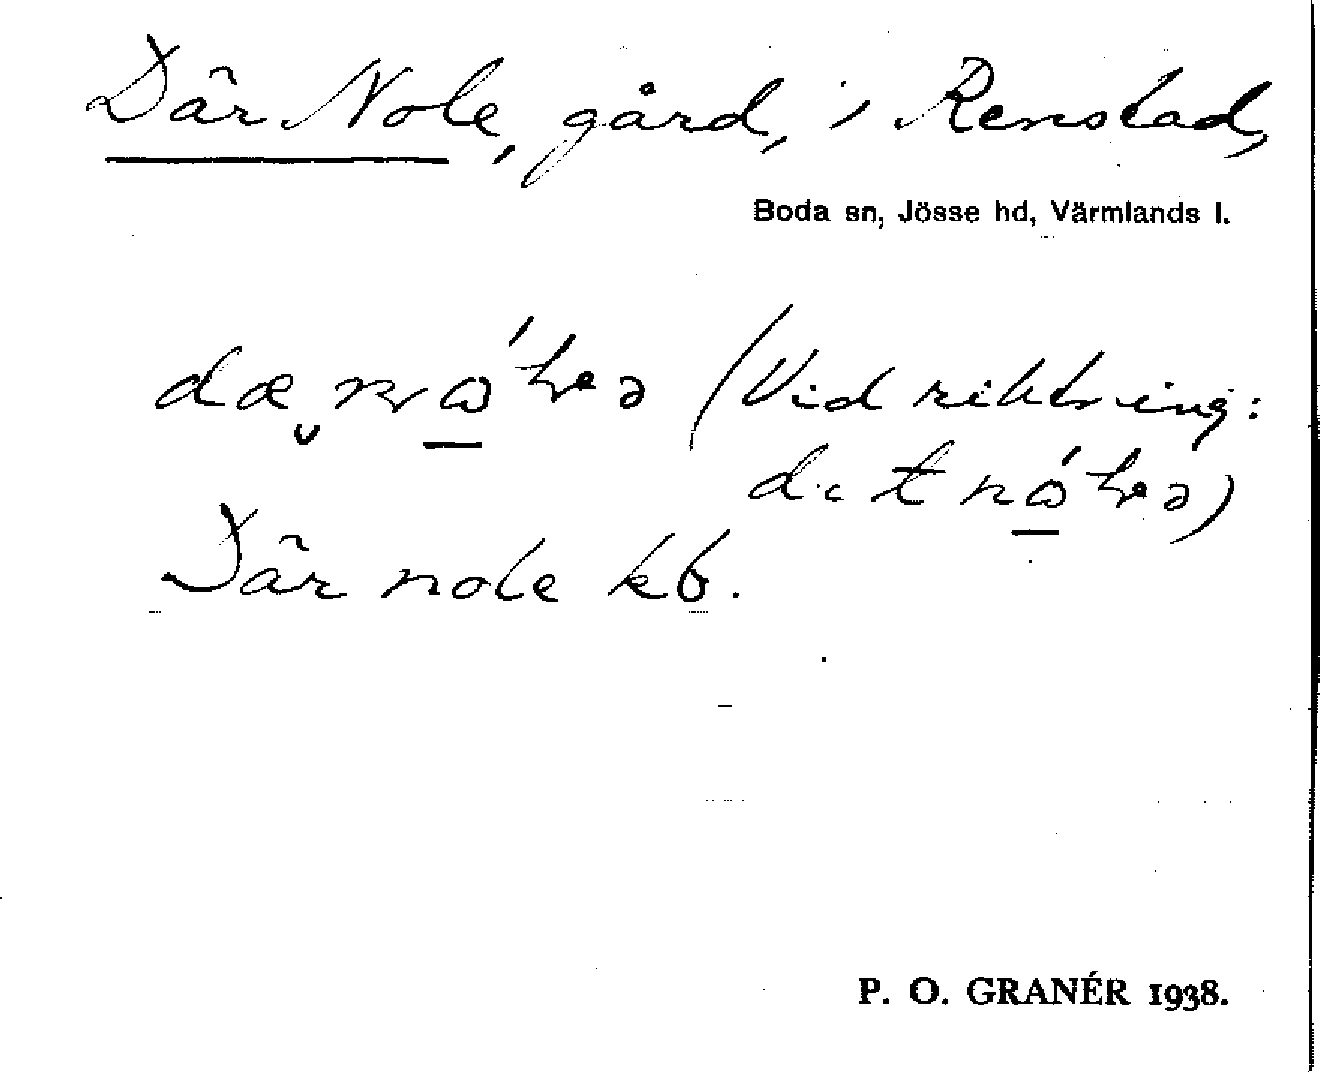 Där Nole, gård, i Renstad,
Boda sn, Jösse hd, Värmlands l.
(Vid riktning:
Där nole kb.
P. O. GRANÉR 1938.